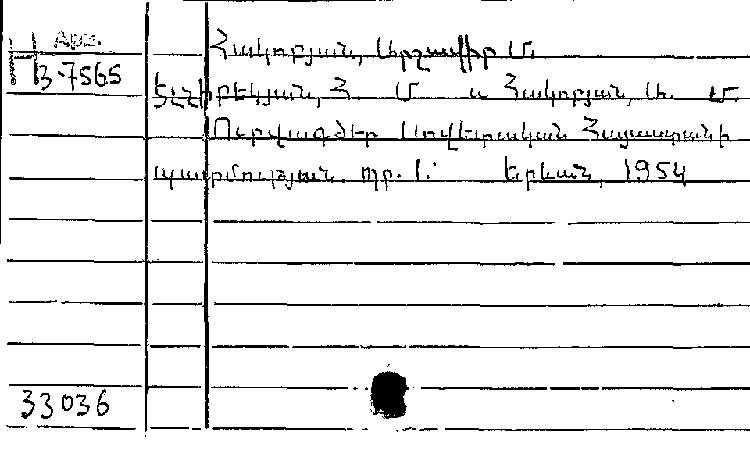 Հակոբյան, Արշավիր Մ.
H Арм.
3-7565
Էլչիբեկյան, Հ. Մ և Հակոբյան, Ա. Մ.
Ուրվագծեր Սովետական Հայաստանի
պատմության. պր. I. Երևան, 1954
33036